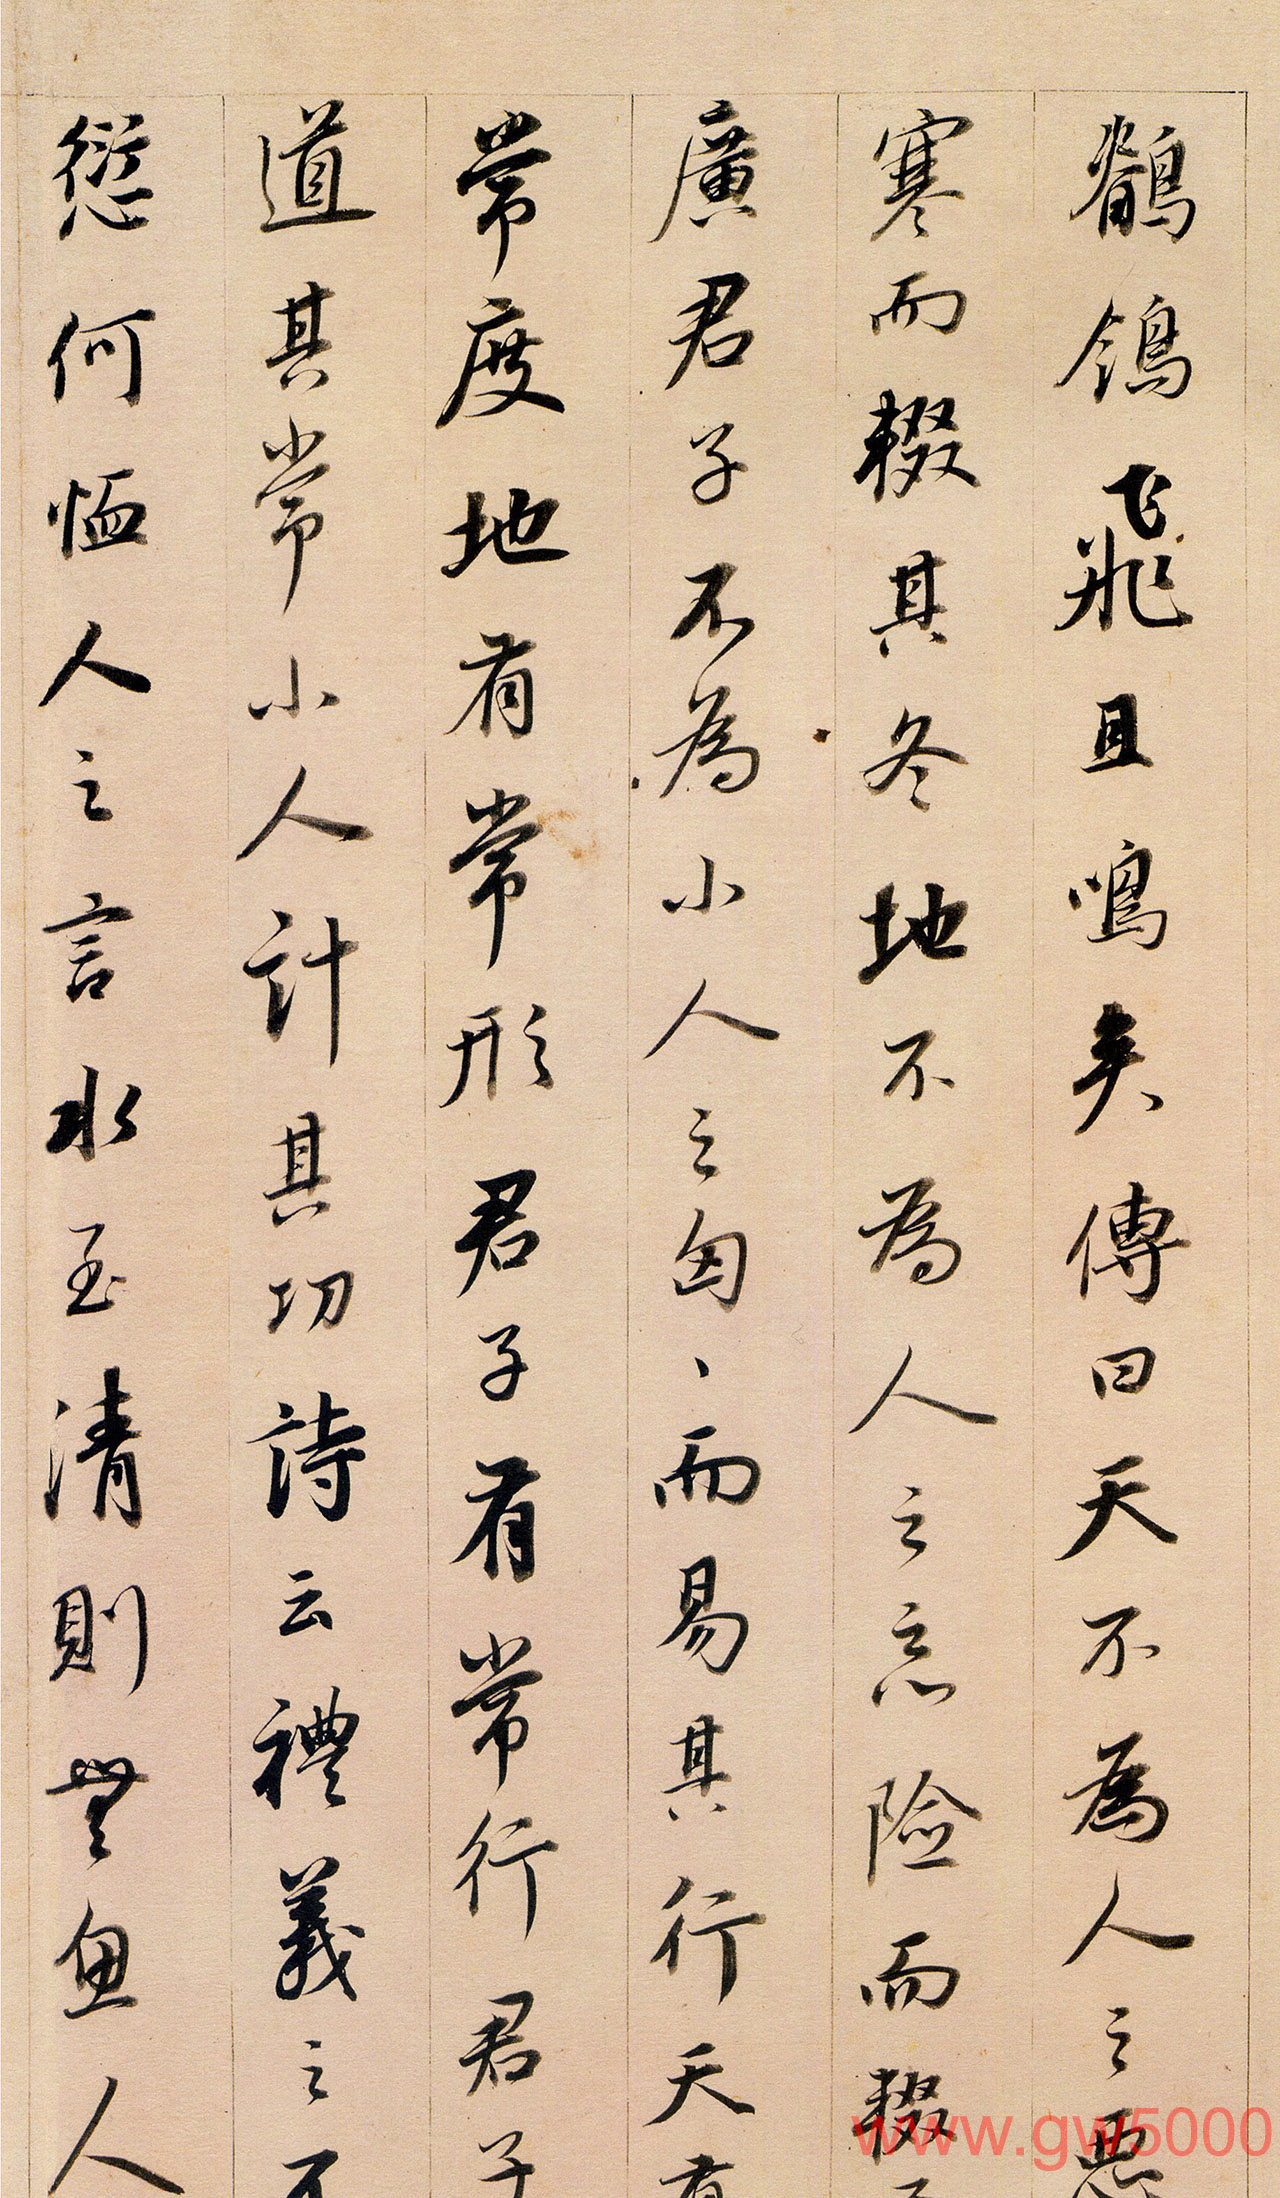 鶺鴒飛且鳴矣傳曰天不為人之惡
寒而輟其冬地不為人之惡險而輟
廣君子不為小人之匈、而易其行天有
常度地有常形君子有常行君子
道其常小人計其功詩云禮義之不
愆何恤人之言水至清則無魚人
www.gw5000